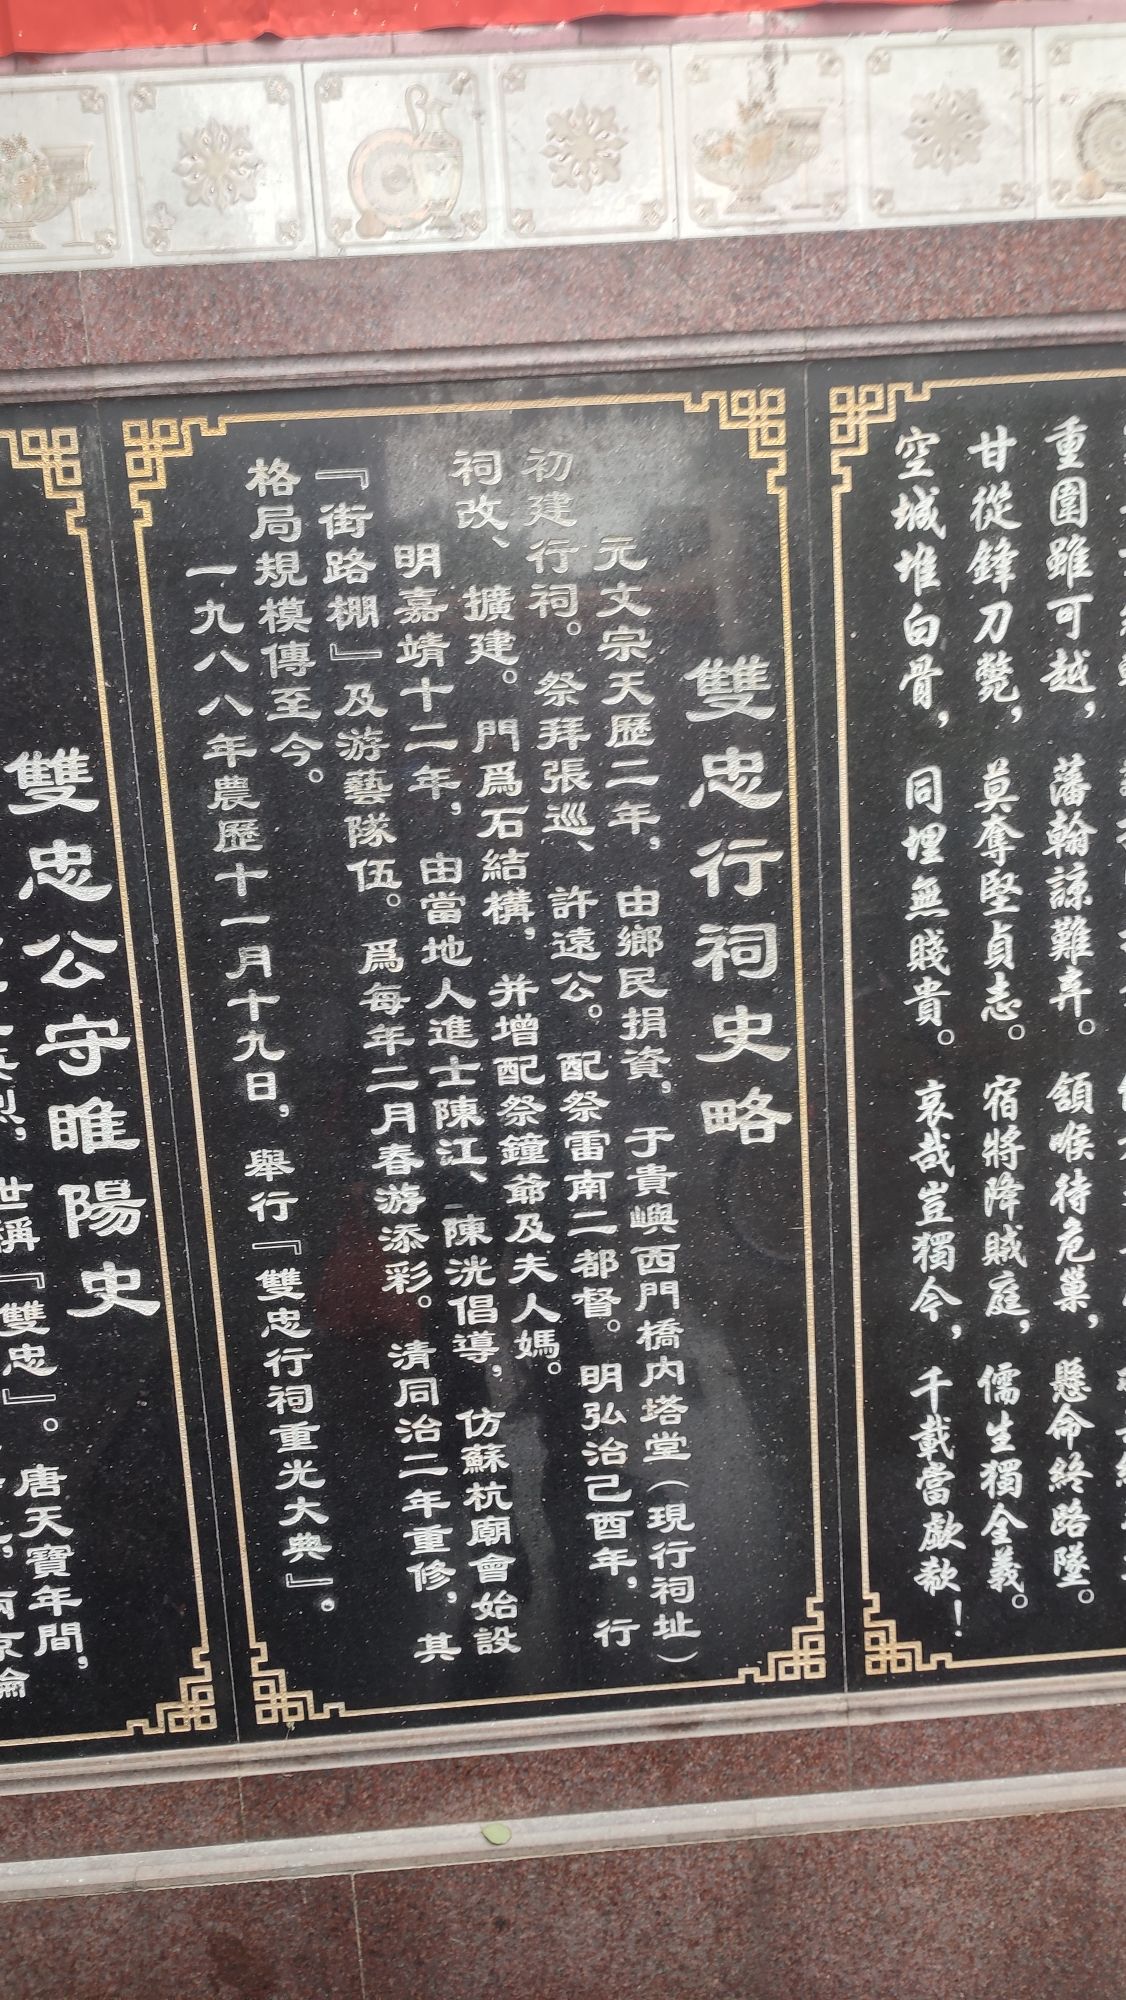 重圍雖可越，藩翰諒難弃。頷喉待危巢，懸命終路墜。
甘從鋒刀斃，莫奪堅貞志。宿將降賊庭，儒生獨全義。
空城堆白骨，同埋無賤貴。哀哉豈獨今，千載當歔欷！
雙忠行祠史略
元文宗天歷二年，由鄉民捐資，于貴嶼西門橋内塔堂（現行祠址）
初建行祠。祭拜張巡、許遠公。配祭雷南二都督。明弘治己酉年，行
祠改、擴建。門爲石結構，并增配祭鐘爺及夫人媽。
明嘉靖十二年，由當地人進士陳江、陳洸倡導，仿蘇杭廟會始設
『街路棚』及游藝隊伍。爲每年二月春游添彩。清同治二年重修，其
格局規模傳至今。
一九八八年農歷十一月十九日，舉行『雙忠行祠重光大典』。
雙忠公守睢陽史
唐天寶年間，
烈，世稱『雙忠』。